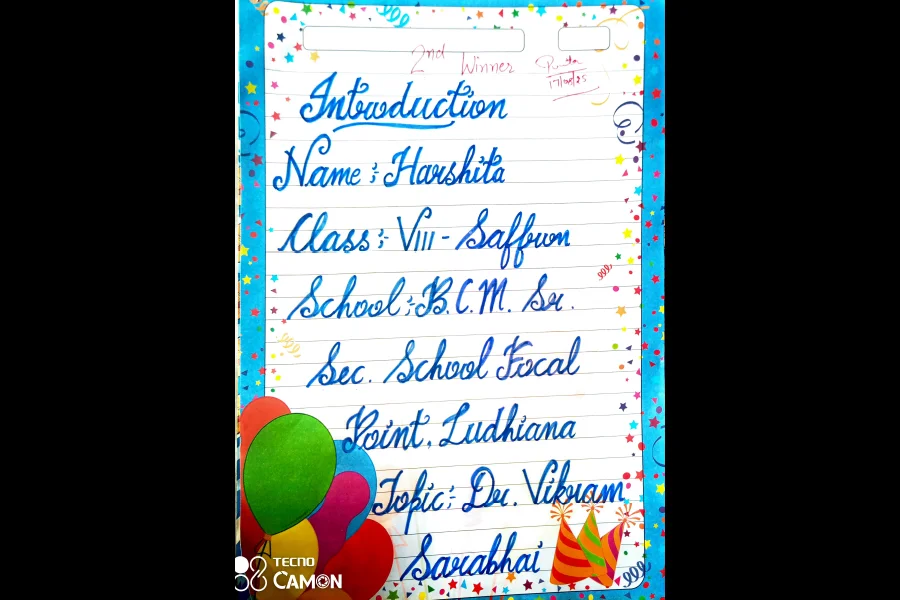 2nd Winner
Introduction
Name :- Harshita
Class :- VIII - Saffron
School :- B.C.M. Sr.
Sec. School Focal
Point, Ludhiana
Topic :- Dr. Vikram
Sarabhai
TECNO
CAMON